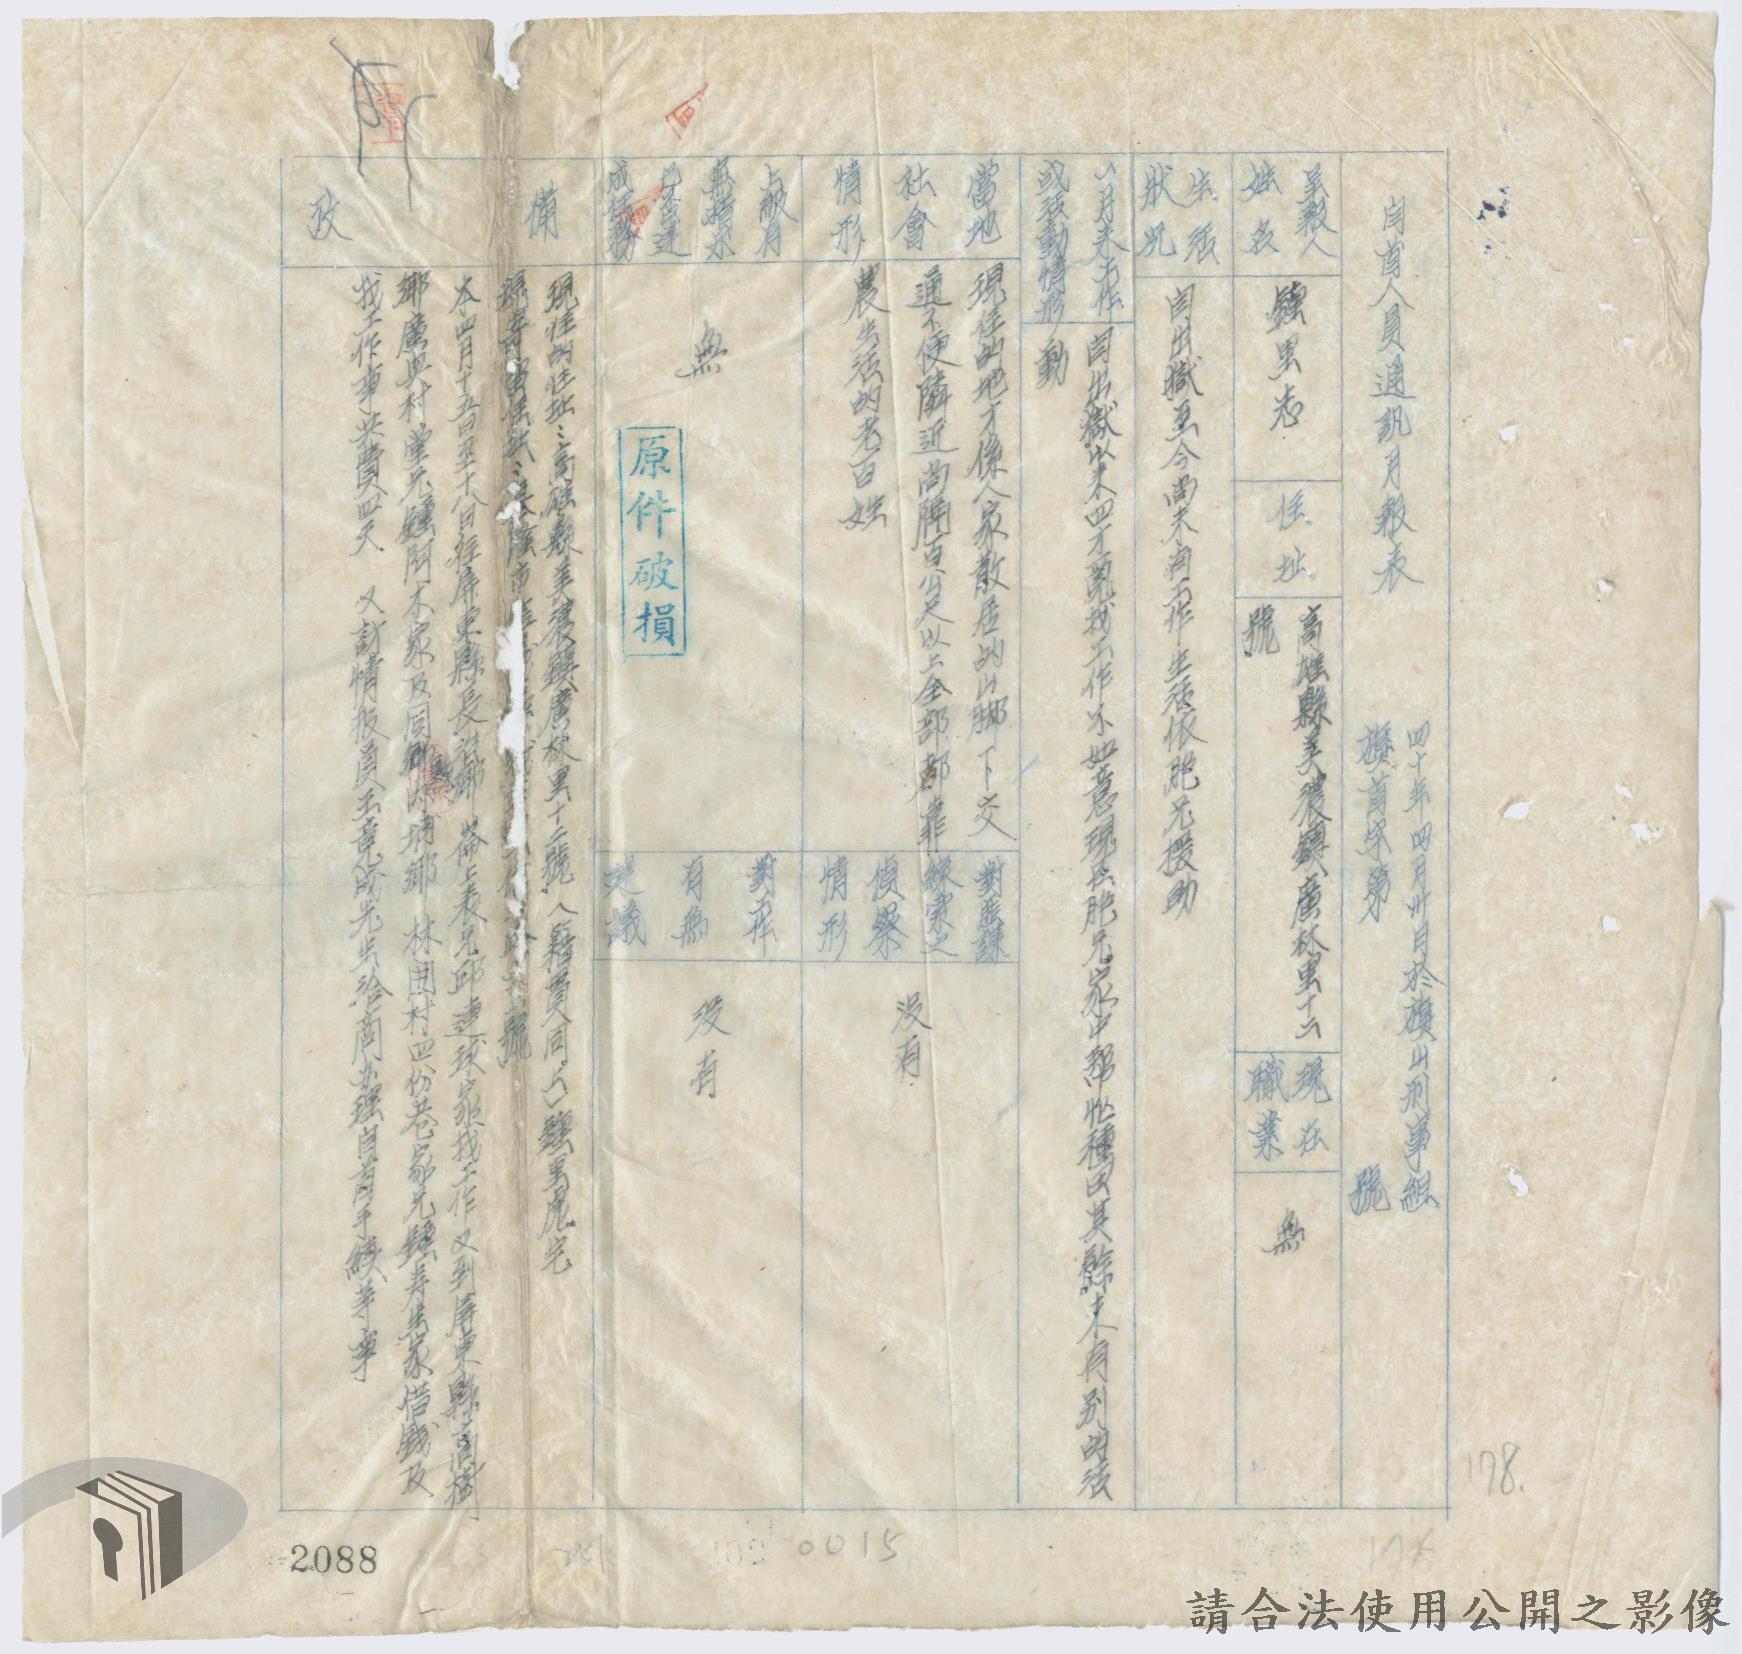 自首人員通訊月報表
四十年四月卅日於旗山刑事組
旗首字第　　號
呈報人
姓名
鍾里志
住址
高雄縣美濃鎮廣林里十二
號
現在
職業
無
生活
狀況
自出獄至今尚未有工作生活依胞兄援助
八月來工作
或活動情形
自出獄以來四方覓找工作不如意現在胞兄家中幫忙種田其餘未有別的活
動
當地
社會
情形
現住的地方係人家散居的山腳下交
通不便隣近尚隔百公尺以上全部都靠
農生活的老百姓
對匪諜
線索之
偵察
情形
沒有
上級有
無指示
已否達
成任務
無
對工作
有無
建議
沒有
備
攷
現住的住址：高雄縣美濃鎮廣林里十二號（籍貫同上）鍾里虎宅
本四月十五日至十八日往屏東縣長治鄉崙上表兄邱連球家找工作又到屏東縣高樹
鄉廣興村堂兄鍾阿木家及同鄉內埔鄉林圍村四份巷家兄鍾壽生家借錢及
找工作事共費四天　又討情报員王亮成先生洽商办理自首手續等事
原件破損
178.
0015
2088
請合法使用公開之影像